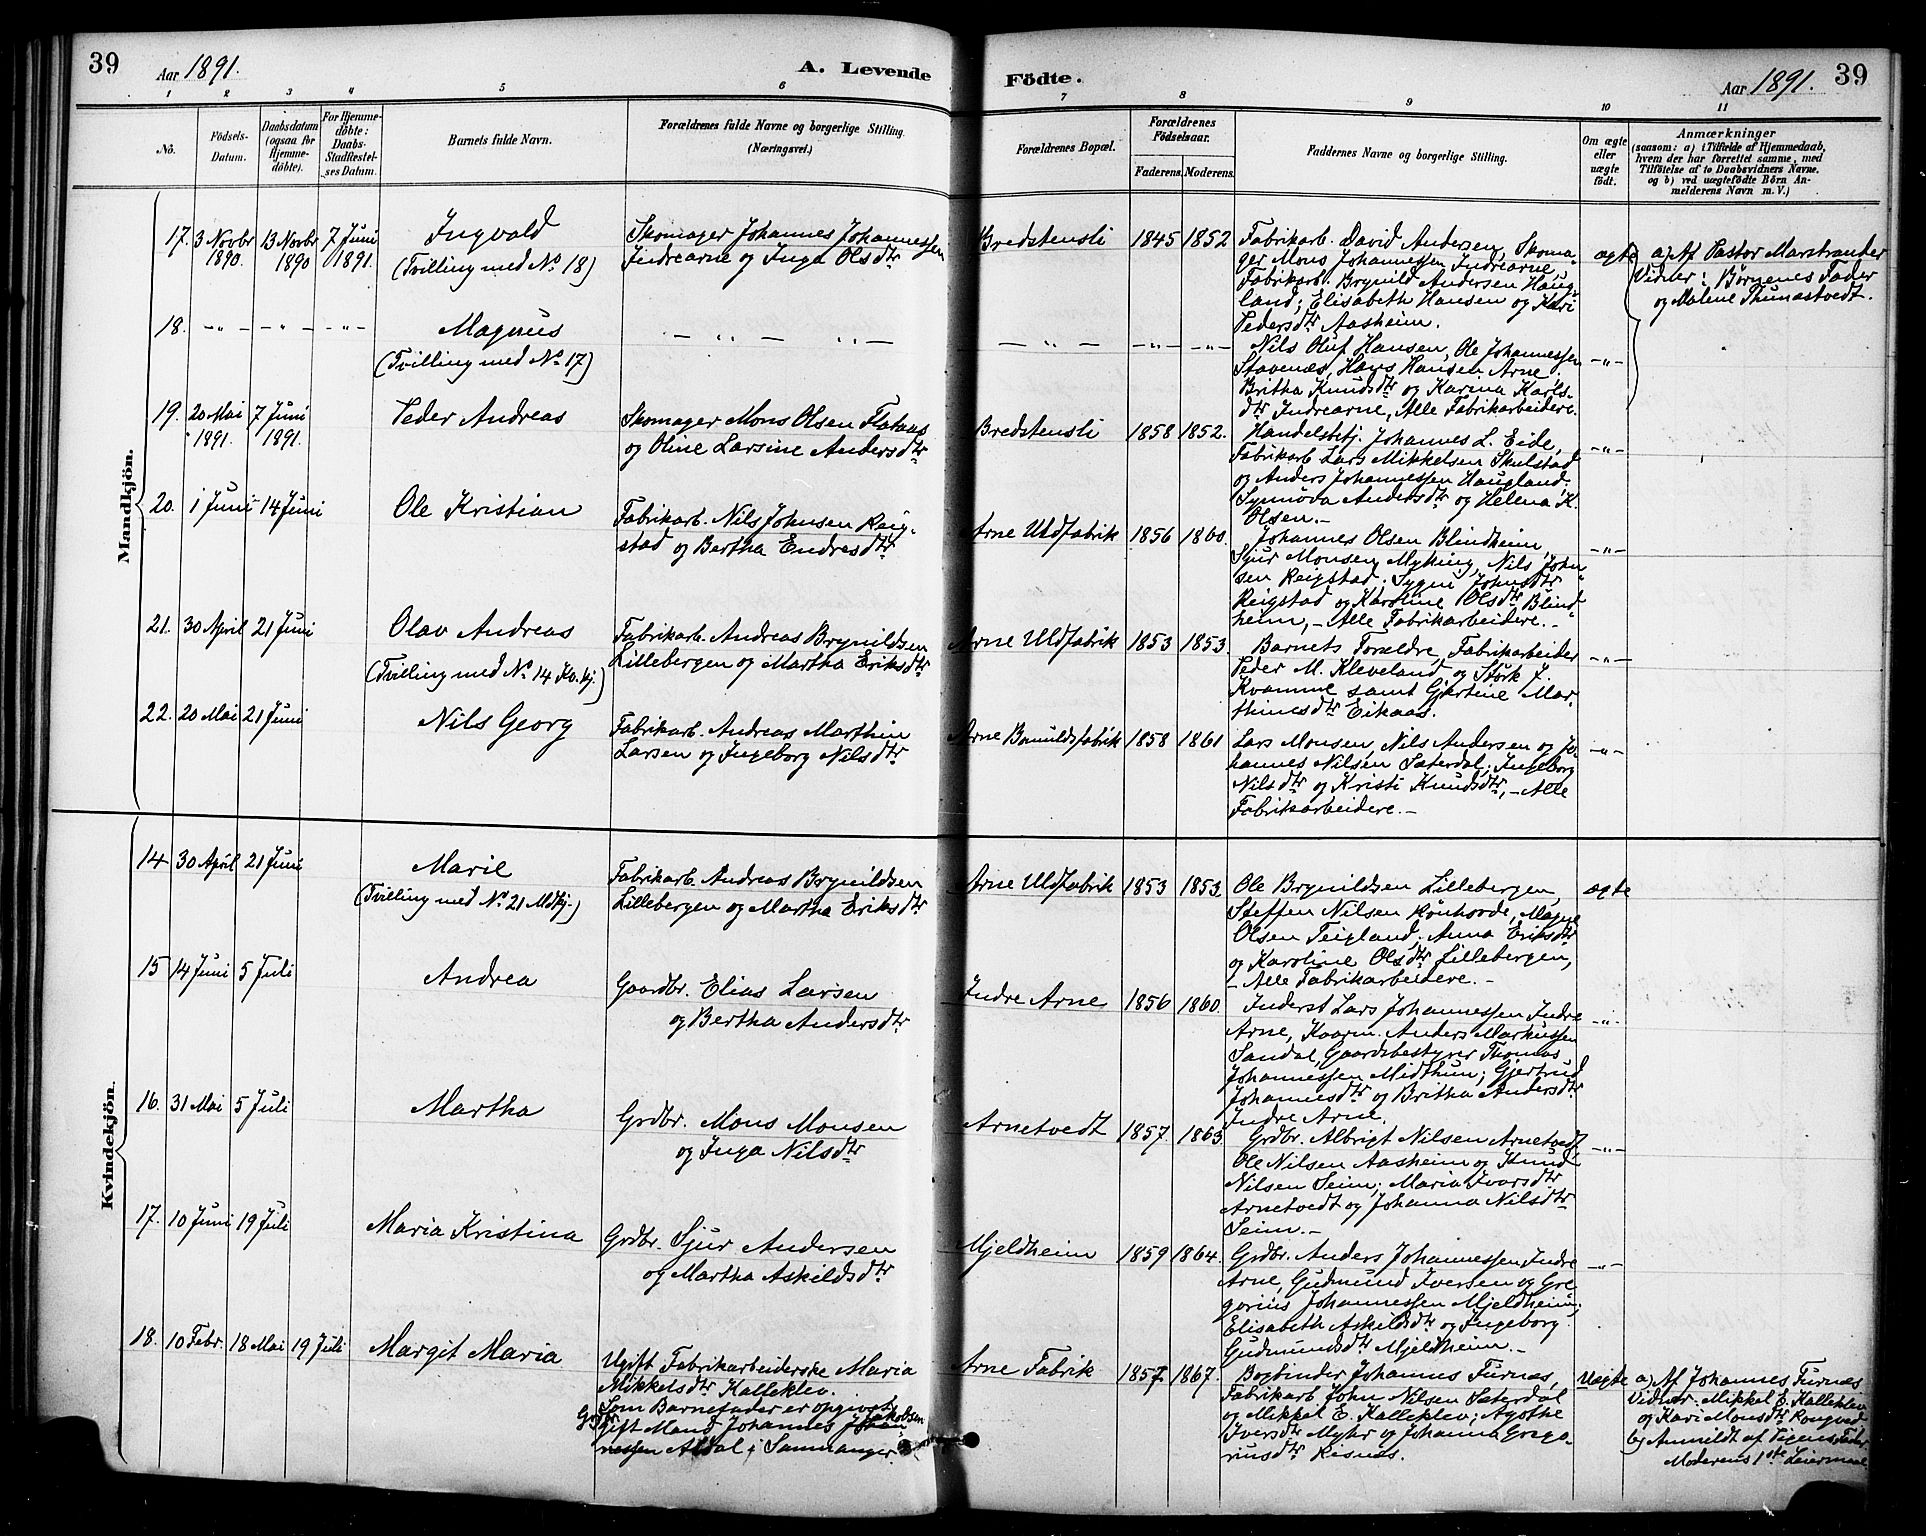 39
Aar 1891.
A. Levende
Födte.
Aar 1891.
39
1 2 3 4 5 6 7 8 9 10 11
No.
Födsels-
Datum.
Daabsdatum
(ogsaa for
Hjemme-
döbte).
For Hjemme-
döbte:
Daabs-
Stadfæstel-
ses Datum.
Barnets fulde Navn.
Forældrenes fulde Navne og borgerlige Stilling.
(Næringsvei.)
Forældrenes Bopæl.
Forældrenes
Födselsaar.
Faderens. Moderens.
Faddernes Navne og borgerlige Stilling.
Om ægte
eller
uægte
födt.
Anmærkninger
(saasom: a) i Tilfælde af Hjemmedaab,
hvem der har forrettet samme, med
Tilföielse af to Daabsvidners Navne.
og b) ved uægtefödte Börn An-
melderens Navn m. V.)
Mandkjön.
17. 3 Novbr 1890. 13 Novbr 1890 7 Juni 1891.
Ingvald
(Tvilling med No 18)
Skomager Johannes Johannessen
Indrearne og Inga Olsdtr
Bredstensli 1845 1852
Fabrikarb. David Andersen, Skoma-
ger Mons Johannessen Indrearne,
Fabrikarb. Brynild Andersen Haug-
land; Elisabeth Hansen og Kari
Pedersdtr Aasheim.
ægte
a) Af Pastor Marstrander
Vidner: Børnenes Fader
og Malene Thunastvedt.
18. -"- -"- -"-
Magnus
(Tvilling med No 17)
- " - " -
- " - -"- -"-
Nils Oluf Hansen, Ole Johannessen
Stavenæs, Hans Hansen Arne;
Britha Knudsdtr og Karina Karls-
dtr Indrearne, Alle Fabrikarbeidere.
-"-
19. 20 Mai 1891. 7 Juni 1891.
Peder Andreas
Skomager Mons Olsen Flataas
og Oline Larsine Andersdtr
Bredstensli 1858 1852.
Handelsbetj. Johannes L. Eide,
Fabrikarb. Lars Mikkelsen Skulstad
og Anders Johannessen Haugland.
Synnöva Andersdtr og Helena K.
Olsen.-
-"-
20. 1 Juni 14 Juni
Ole Kristian
Fabrikarb. Nils Johnsen Reig-
stad og Bertha Endresdtr
Arne Uldfabrik 1856 1860.
Johannes Olsen Blindheim,
Sjur Monsen Myking, Nils John-
sen Reigstad; Sygni Johnsdtr
Reigstad og Karoline Olsdtr Blind-
heim, - Alle Fabrikarbeidere.-
-"-
21. 30 April 21 Juni
Olav Andreas
(Tvilling med No 14 Kv.kj.)
Fabrikarb. Andreas Brynildsen
Lillebergen og Martha Eriksdtr
Arne Uldfabrik 1853 1853.
Barnets Forældre, Fabrikarbeider
Peder M. Kleveland og Störk J.
Kvamme samt Gjertine Mar-
thinesdtr Eikaas.
-"-
22. 20 Mai 21 Juni
Nils Georg
Fabrikarb. Andreas Marthin
Larsen og Ingeborg Nilsdtr
Arne Bomuldsfabrik 1858 1861
Lars Monsen, Nils Andersen og Jo-
hannes Nilsen Sæterdal; Ingeborg
Nilsdtr og Kristi Knudsdtr, - Alle
Fabrikarbeidere.-
-"-
Kvindekjön.
14 30 April 21 Juni
Maril
(Tvilling med No 21 Mdkj.)
Fabrikarb. Andreas Brynildsen
Lillebergen og Martha Eriksdtr
Arne Uldfabrik 1853 1853.
Ole Brynildsen Lillebergen,
Steffen Nilsen Rönhovde, Magne
Olsen Teigland; Anna Eriksdtr
og Karoline Olsdtr Lillebergen,
- Alle Fabrikarbeidere.-
ægte
15 14 Juni 5 Juli
Andrea
Gaardbr. Elias Larsen
og Bertha Andersdtr
Indre Arne 1856 1860.
Inderst Lars Johannessen Indre
Arne, Kvarm. Anders Markussen
Sandal, Gaardsbestyrer Thomas
Johannessen Midthun; Gjertrud
Johannesdtr og Britha Andersdtr
Indre Arne.
-"-
16. 31 Mai 5 Juli
Martha
Grdbr. Mons Monsen
og Inga Nilsdtr
Arnetvedt 1857. 1863.
Grdbr. Albrigt Nilsen Arnetvedt,
Ole Nilsen Aasheim og Knud
Nilsen Seim; Maria Ivarsdtr
Arnetvedt og Johanna Nilsdtr
Seim.-
-"-
17. 10 Juni 19 Juli
Maria Kristina
Grdbr. Sjur Andersen
og Martha Askildsdtr
Mjeldheim 1859 1864.
Grdbr. Anders Johannessen Indre
Arne, Gudmund Iversen og Gre-
gorius Johannessen Mjeldheim;
Elisabeth Askildsdtr og Ingeborg
Gudmundsdtr Mjeldheim.-
-"-
18. 10 Febr. 18 Mai 19 Juli
Margit Maria
Ugift Fabrikarbeiderske Maria
Mikkelsdtr Kalleklev.
Som Barnefader er opgivet
Grdbr. gift Mand Johannes Jakobsen
Aldal i Samnanger
Arne Fabrik 1857. 1867.
Bogbinder Johannes Furnæs,
Fabrikarb. John Nilsen Sæterdal
og Mikkel E. Kalleklev; Agothe
Iversdtr Myhr og Johanna Grego-
riusdtr Risnæs.
Uægte
a) Af Johannes Furnæs
Vidner: Mikkel E. Kalleklev
og Kari Monsdtr Rongved
b) Anmeldt af Pigens Fader
Moderens 1ste Leiermaal.